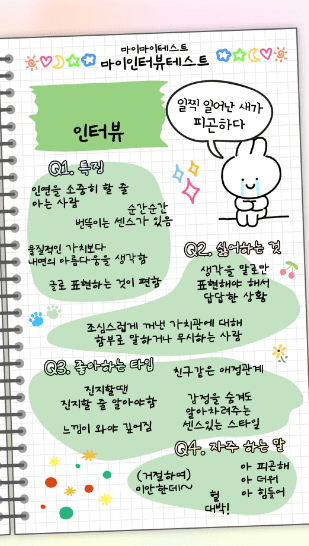 마이마이테스트
마이인터뷰테스트
인터뷰
일찍 일어난 새가
피곤하다
Q1. 특징
인연을 소중히 할 줄
아는 사람
순간순간
번뜩이는 센스가 있음
물질적인 가치보다
내면의 아름다움을 생각함
글로 표현하는 것이 편함
Q2. 싫어하는 것
생각을 말로만
표현해야 해서
답답한 상황
조심스럽게 꺼낸 가치관에 대해
함부로 말하거나 무시하는 사람
Q3. 좋아하는 타입
친구같은 애정관계
진지할땐
진지할 줄 알아야함
느낌이 와야 깊어짐
감정을 숨겨도
알아차려주는
센스있는 스타일
Q4. 자주 하는 말
(거절하며)
미안한데~
헐
대박!
아 피곤해
아 더워
아 힘들어